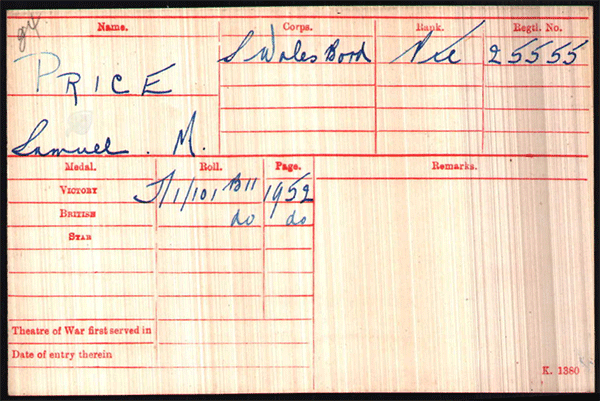 Name. Corps. Rank. Regtl. No.
PRICE S Wales Bord Pte 25555
Samuel. M.
Medal. Roll. Page. Remarks.
VICTORY J/1/101 B11 1952
BRITISH do do
STAR
Theatre of War first served in
Date of entry therein
K. 1380